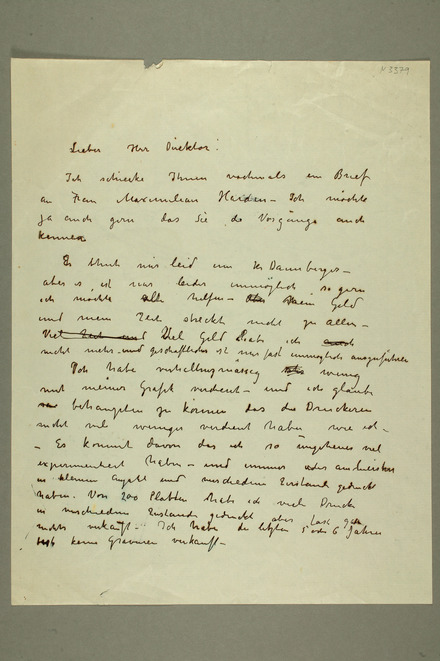 N 3379
Lieber Herr Direktor!
Ich schicke Ihnen nochmals ein Brief
an Frau Maximilian Harden – Ich möchte
ja auch gern das Sie die Vorgänge auch
kennen
Es thut mir leid um Hr Dannberger –
aber es ist uns leider unmöglich so gern
ich möchte alle helfen – Mein Geld
und meine Zeit streckt nicht zu allen –
Viel Zeit und Viel Geld habe ich auch
nicht mehr – und geschäftliches ist mir fast unmöglich auszuführen
Ich habe verhältnismässig wenig
mit meiner Grafik verdient – und ich glaube
behaupten zu können das die Druckeren
nicht viel weniger verdient haben wie ich –
– Es kommt davon das ich so ungeheuer viel
experimentiert habe – und immer
in kleinen Anzahl und verschiedene Zustände gedruckt
haben. Von 200 Platten habe ich viele Drucke
in verschiedene Zustände gedruckt aber fast gar
nichts verkauft – Ich habe die letzten 5 oder 6 Jahre
keine Gravuren verkauft –